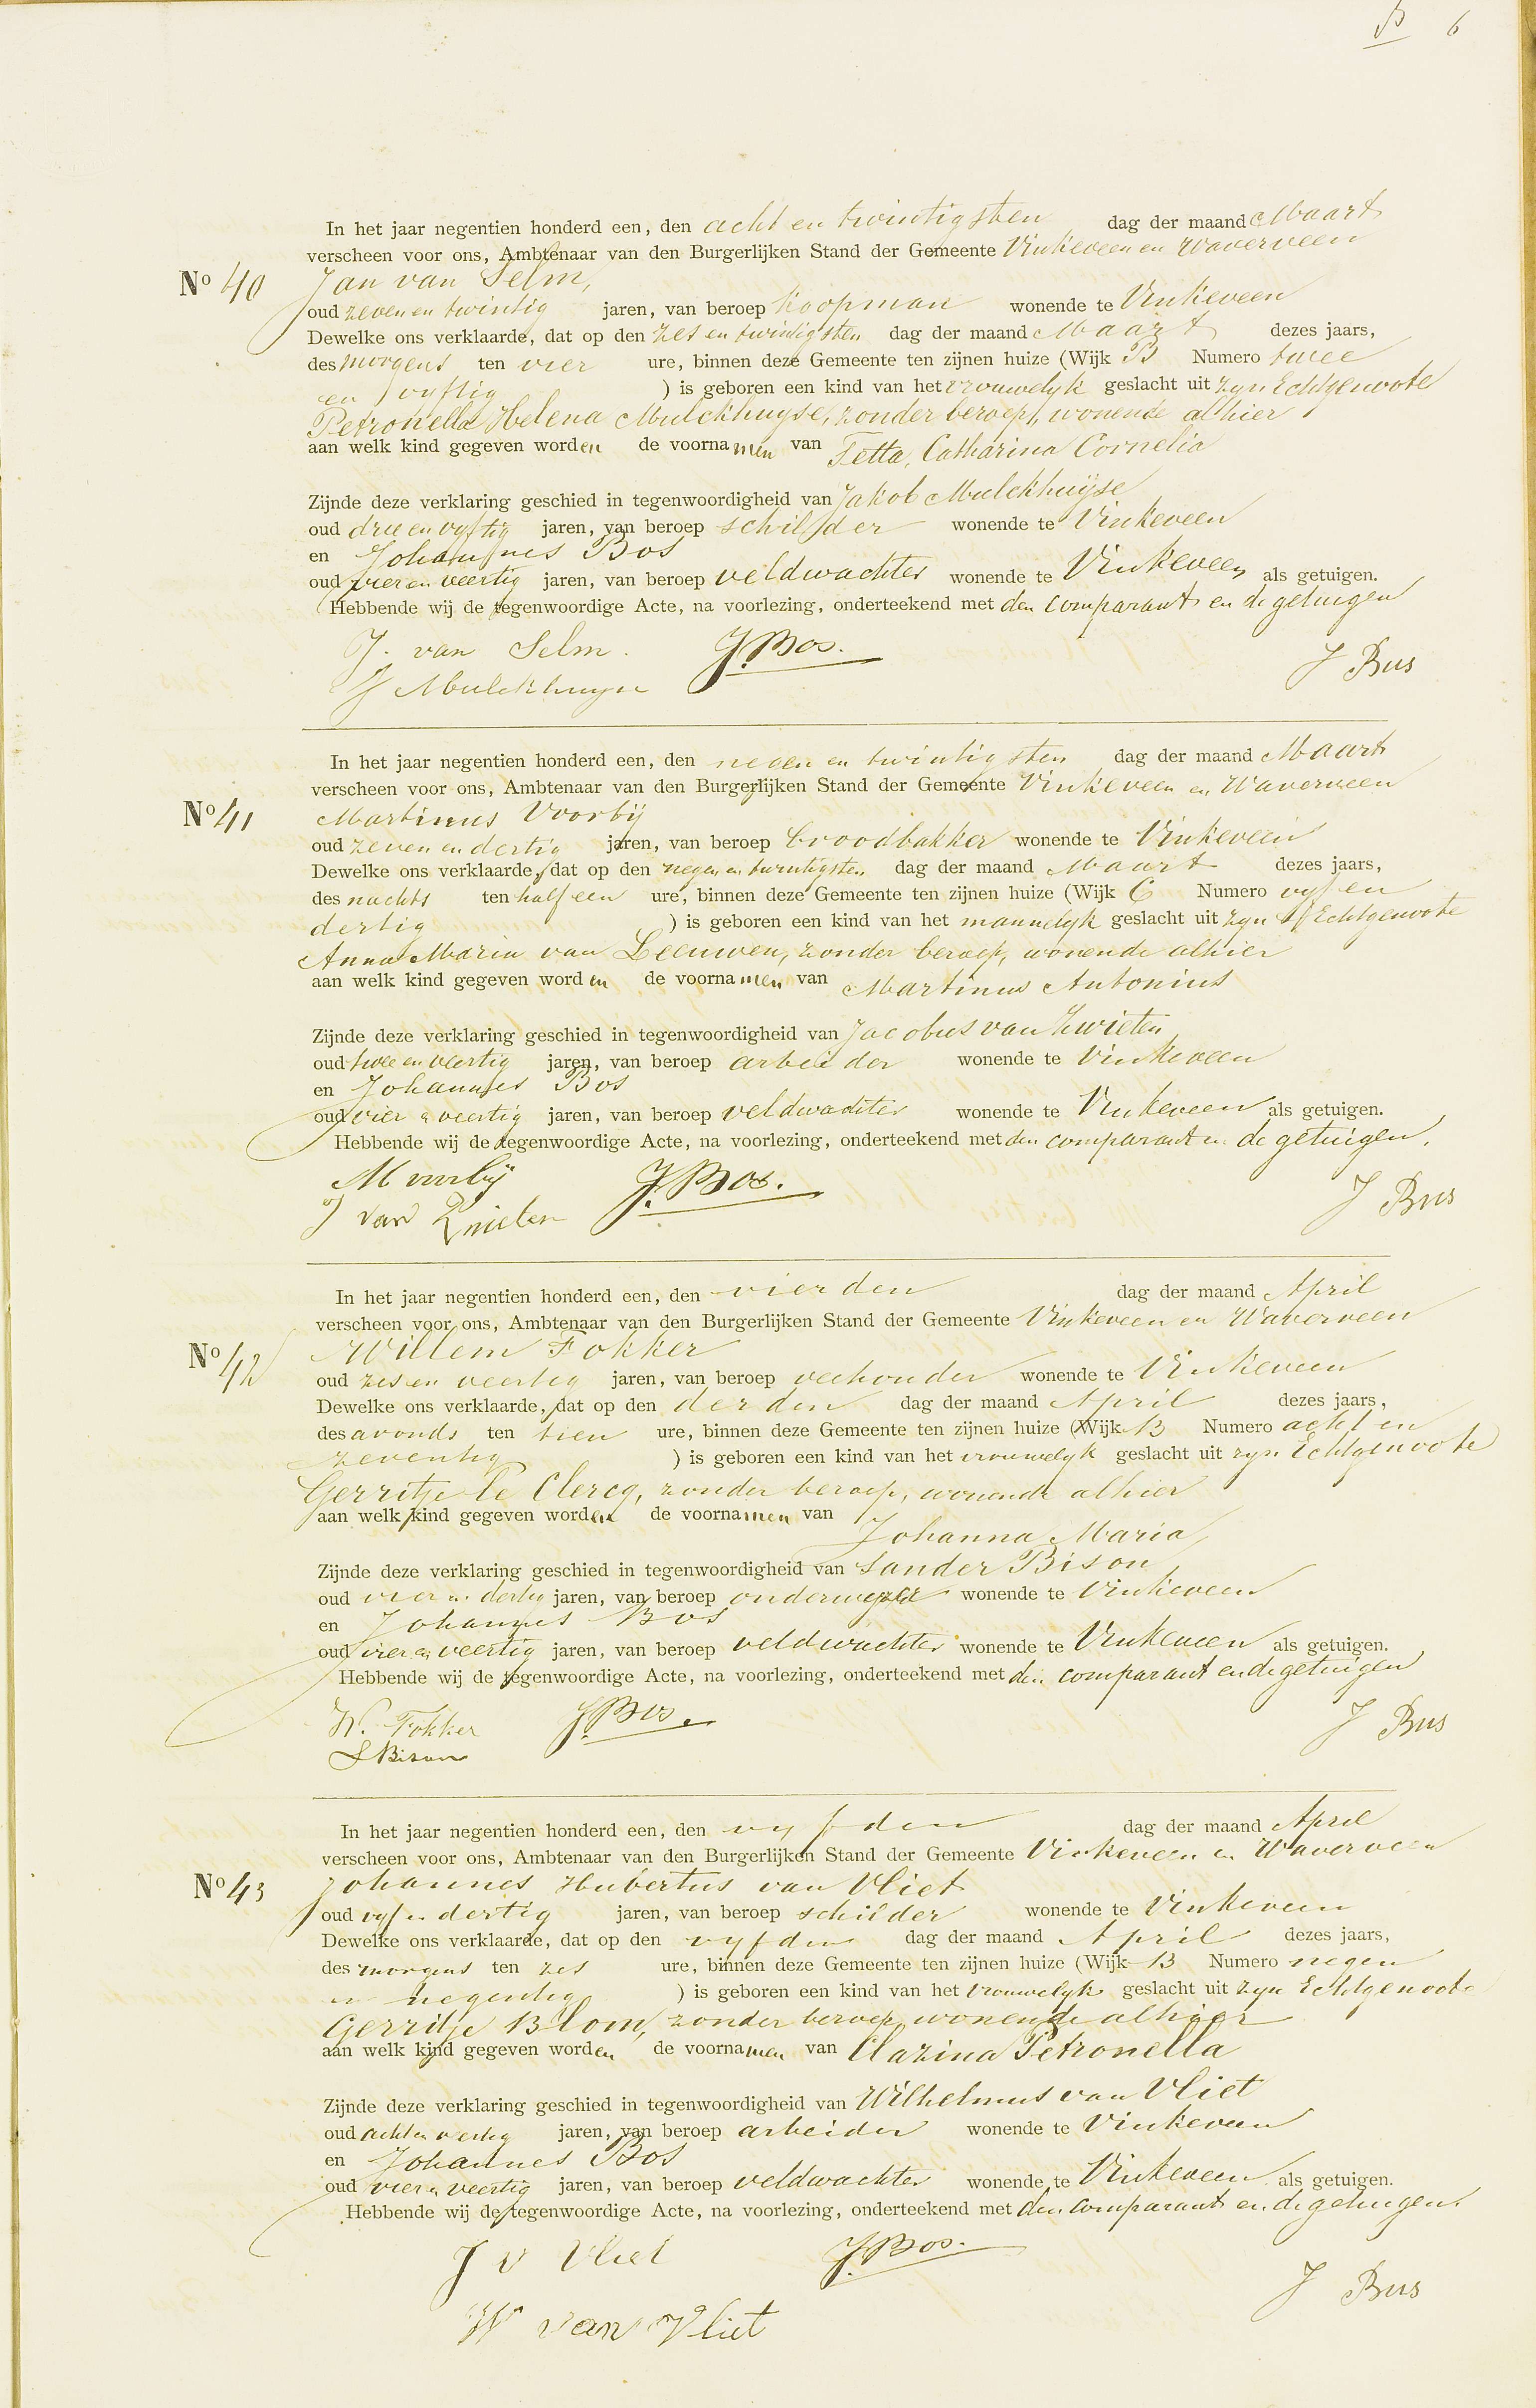 B 6
In het jaar negentien honderd een, den acht en twintigsten dag der maand Maart
verscheen voor ons, Ambtenaar van den Burgerlijken Stand der Gemeente Vinkeveen en Waverveen
No 40 Jan van Selm,
oud zeven en twintig jaren, van beroep koopman wonende te Vinkeveen
Dewelke ons verklaarde, dat op den zes en twintigsten dag der maand Maart dezes jaars,
des morgens ten vier ure, binnen deze Gemeente ten zijnen huize (Wijk B Numero twee
en vyftig ) is geboren een kind van het vrouwelyk geslacht uit zyn Echtgenoote
Petronella Helena Mulckhuyse, zonder beroep, wonende alhier
aan welk kind gegeven worden de voornamen van Tetta, Catharina Cornelia
Zijnde deze verklaring geschied in tegenwoordigheid van Jakob Mulckhuijse
oud drie en vyftig jaren, van beroep schilder wonende te Vinkeveen
en Johannes Bos
oud vier en veertig jaren, van beroep veldwachter wonende te Vinkeveen als getuigen.
Hebbende wij de tegenwoordige Acte, na voorlezing, onderteekend met den comparant en de getuigen
J. van Selm. J. Bos. J Bus
J Mulckhuyse
In het jaar negentien honderd een, den negen en twintigsten dag der maand Maart
verscheen voor ons, Ambtenaar van den Burgerlijken Stand der Gemeente Vinkeveen en Waverveen
No 41 Martinus Voorbij
oud zeven en dertig jaren, van beroep broodbakker wonende te Vinkeveen
Dewelke ons verklaarde, dat op den negen en twintigsten dag der maand Maart dezes jaars,
des nachts ten half een ure, binnen deze Gemeente ten zijnen huize (Wijk C Numero vyf en
dertig ) is geboren een kind van het mannelyk geslacht uit zyn Echtgenoote
Anna Maria van Leeuwen, zonder beroep, wonende alhier
aan welk kind gegeven worden de voornamen van Martinus Antonius
Zijnde deze verklaring geschied in tegenwoordigheid van Jacobus van Zwieten
oud twee en veertig jaren, van beroep arbeider wonende te Vinkeveen
en Johannes Bos
oud vier en veertig jaren, van beroep veldwachter wonende te Vinkeveen als getuigen.
Hebbende wij de tegenwoordige Acte, na voorlezing, onderteekend met den comparant en de getuigen.
M voorbij J. Bos. J Bus
J van Zwieten
In het jaar negentien honderd een, den vierden dag der maand April
verscheen voor ons, Ambtenaar van den Burgerlijken Stand der Gemeente Vinkeveen en Waverveen
No 42 Willem Fokker
oud zes en veertig jaren, van beroep veehouder wonende te Vinkeveen
Dewelke ons verklaarde, dat op den derden dag der maand April dezes jaars,
des avonds ten tien ure, binnen deze Gemeente ten zijnen huize (Wijk B Numero acht en
zeventig ) is geboren een kind van het vrouwelyk geslacht uit zyn Echtgenoote
Gerritje le Clercq, zonder beroep, wonende alhier
aan welk kind gegeven worden de voornamen van Johanna Maria
Zijnde deze verklaring geschied in tegenwoordigheid van Sander Bison
oud vier en dertig jaren, van beroep onderwyzer wonende te Vinkeveen
en Johannes Bos
oud vier en veertig jaren, van beroep veldwachter wonende te Vinkeveen als getuigen.
Hebbende wij de tegenwoordige Acte, na voorlezing, onderteekend met den comparant en de getuigen
W. Fokker J. Bos. J Bus
S Bison
In het jaar negentien honderd een, den vyfden dag der maand April
verscheen voor ons, Ambtenaar van den Burgerlijken Stand der Gemeente Vinkeveen en Waverveen
No 43 Johannes Hubertus van Vliet
oud vyf en dertig jaren, van beroep schilder wonende te Vinkeveen
Dewelke ons verklaarde, dat op den vyfden dag der maand April dezes jaars,
des morgens ten zes ure, binnen deze Gemeente ten zijnen huize (Wijk B Numero negen
en negentig ) is geboren een kind van het vrouwelyk geslacht uit zyn Echtgenoote
Gerritje Blom, zonder beroep, wonende alhier
aan welk kind gegeven worden de voornamen van Clazina Petronella
Zijnde deze verklaring geschied in tegenwoordigheid van Wilhelmus van Vliet
oud acht en veertig jaren, van beroep arbeider wonende te Vinkeveen
en Johannes Bos
oud vier en veertig jaren, van beroep veldwachter wonende te Vinkeveen als getuigen.
Hebbende wij de tegenwoordige Acte, na voorlezing, onderteekend met den comparant en de getuigen.
J v Vliet J. Bos. J Bus
W van Vliet